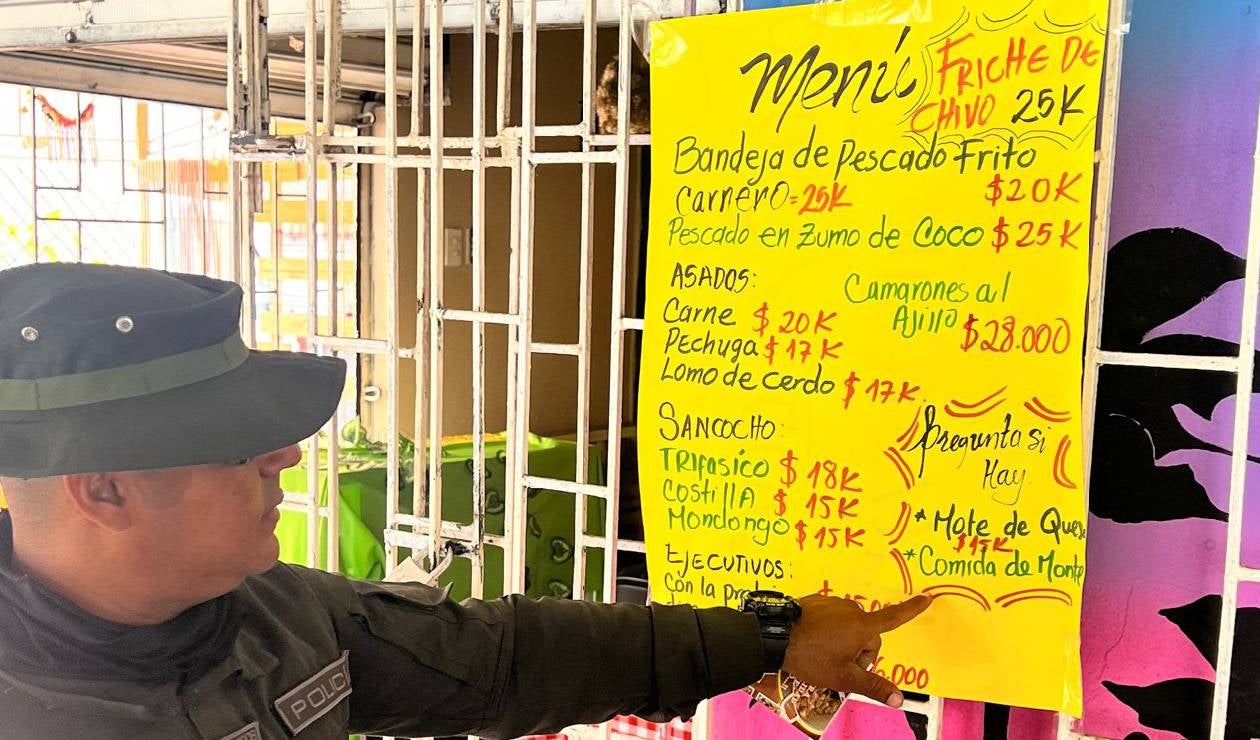 Menú
FRICHE DE
CHIVO 25K
Bandeja de Pescado Frito
$20K
Carnero = 25K
Pescado en Zumo de Coco $25K
ASADOS:
Carne $20K
Pechuga $17K
Lomo de Cerdo $17K
Camarones al
Ajillo $28.000
SANCOCHO:
TRIfasico $18K
COSTILLA $15K
MONDONGO $15K
Pregunta si
Hay
* Mote de Ques
$15K
* Comida de Monte
EJECUTIVOS:
Con la
.000
POLICI